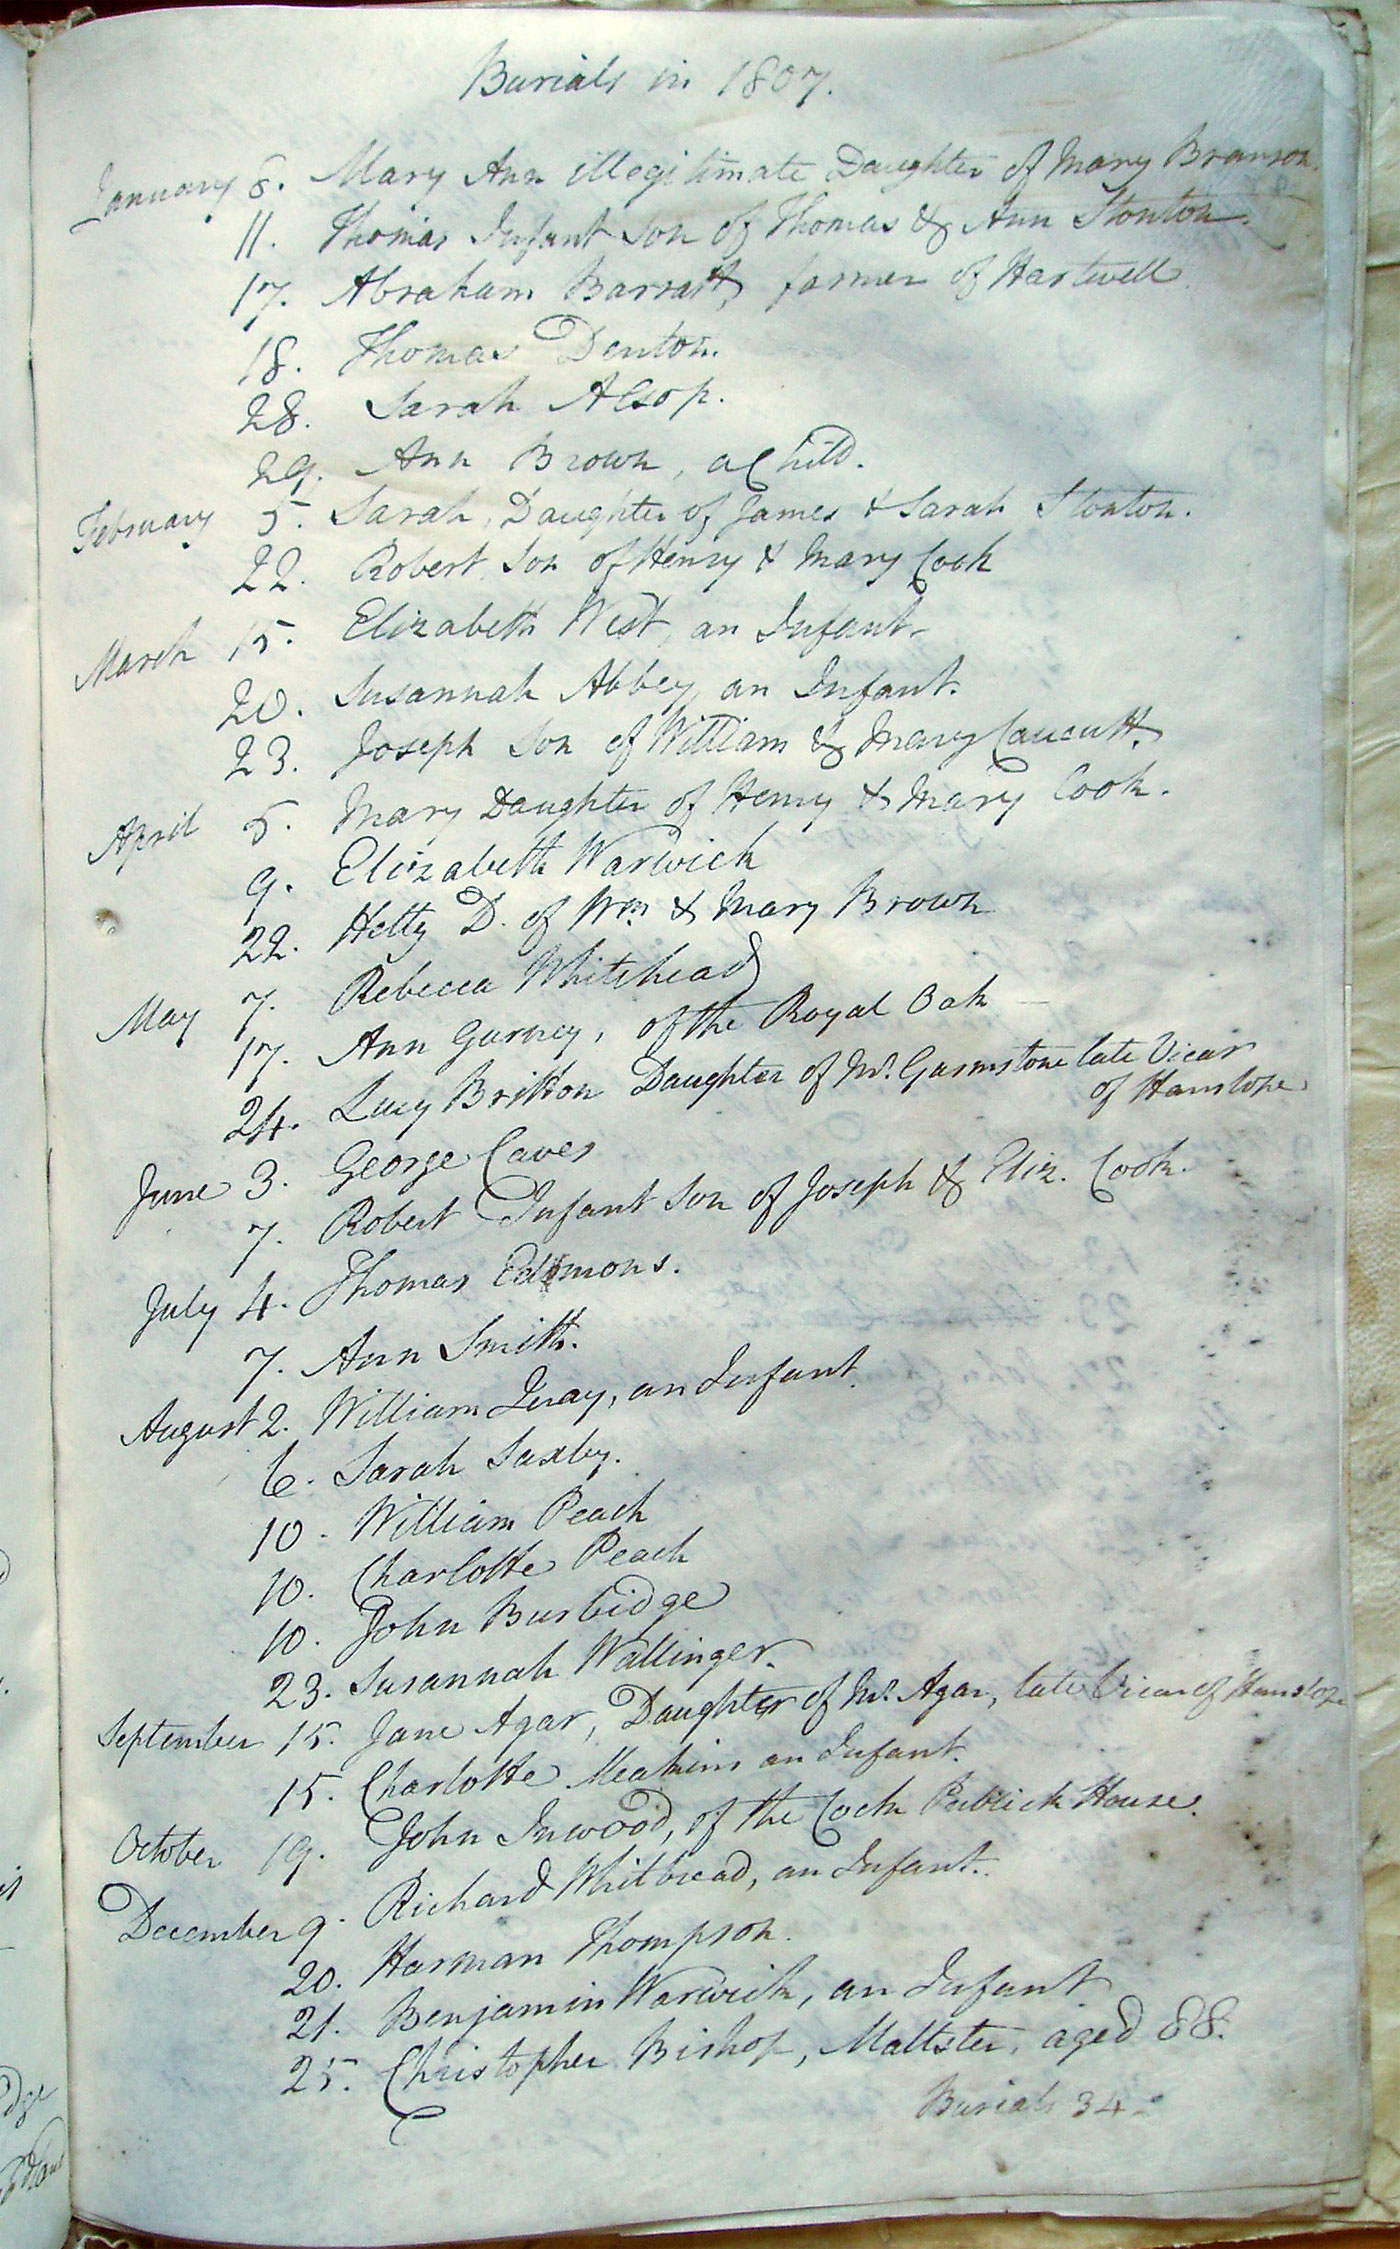 Burials in 1807.
January 6. Mary Ann illegitimate Daughter of Mary Branson.
11. Thomas Infant Son of Thomas & Ann Stonton.
17. Abraham Barratt, farmer of Hartwell.
18. Thomas Denton.
28. Sarah Alsop.
29. Ann Brown, a Child.
February 5. Sarah, Daughter of James & Sarah Stonton.
22. Robert, Son of Henry & Mary Cook
March 15. Elizabeth West, an Infant.
20. Susannah Abbey, an Infant.
23. Joseph Son of William & Mary Caucutt.
April 5. Mary Daughter of Henry & Mary Cook.
9. Elizabeth Warwick
22. Hetty D. of Wm. & Mary Brown
May 7. Rebecca Whitehead
17. Ann Gurney, of the Royal Oak
24. Lucy Britton Daughter of Mr. Garmstone late Vicar
of Hanslope.
June 3. George Caves
7. Robert Infant Son of Joseph & Eliz. Cook.
July 4. Thomas Edmons.
7. Ann Smith.
August 2. William Quay, an Infant.
6. Sarah Saxby.
10. William Peach
10. Charlotte Peach
10. John Burbidge
23. Susannah Wallinger.
September 15. Jane Agar, Daughter of Mr. Agar, late Vicar of Hanslope
15. Charlotte Meakins an Infant.
October 19. John Inwood, of the Cock Publick House.
December 9. Richard Whitbread, an Infant.
20. Harman Thompson.
21. Benjamin Warwick, an Infant.
25. Christopher Bishop, Maltster, aged 88.
Burials 34